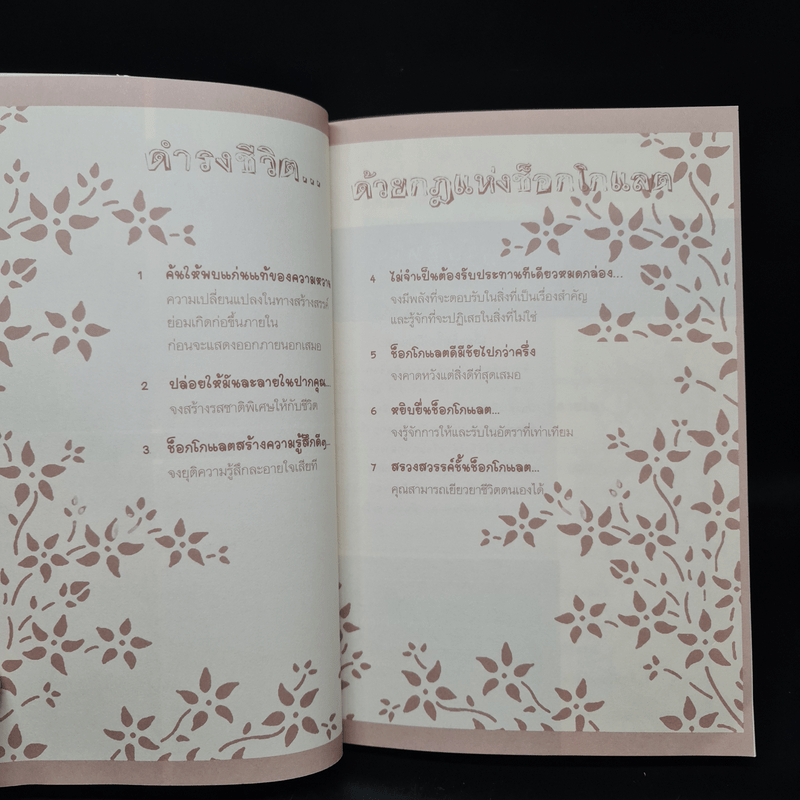 ดำรงชีวิต...
1 ค้นให้พบแก่นแท้ของความหวาน
ความเปลี่ยนแปลงในทางสร้างสรรค์
ย่อมเกิดก่อขึ้นภายใน
ก่อนจะแสดงออกภายนอกเสมอ
2 ปล่อยให้มันละลายในปากคุณ...
จงสร้างรสชาติพิเศษให้กับชีวิต
3 ช็อกโกแลตสร้างความรู้สึกดีๆ...
จงยุติความรู้สึกละอายใจเสียที
ด้วยกฎแห่งช็อกโกแลต
4 ไม่จำเป็นต้องรับประทานทีเดียวหมดกล่อง...
จงมีพลังที่จะตอบรับในสิ่งที่เป็นเรื่องสำคัญ
และรู้จักที่จะปฏิเสธในสิ่งที่ไม่ใช่
5 ช็อกโกแลตดีมีชัยไปกว่าครึ่ง
จงคาดหวังแต่สิ่งดีที่สุดเสมอ
6 หยิบยื่นช็อกโกแลต...
จงรู้จักการให้และรับในอัตราที่เท่าเทียม
7 สรวงสวรรค์ชั้นช็อกโกแลต...
คุณสามารถเยียวยาชีวิตตนเองได้